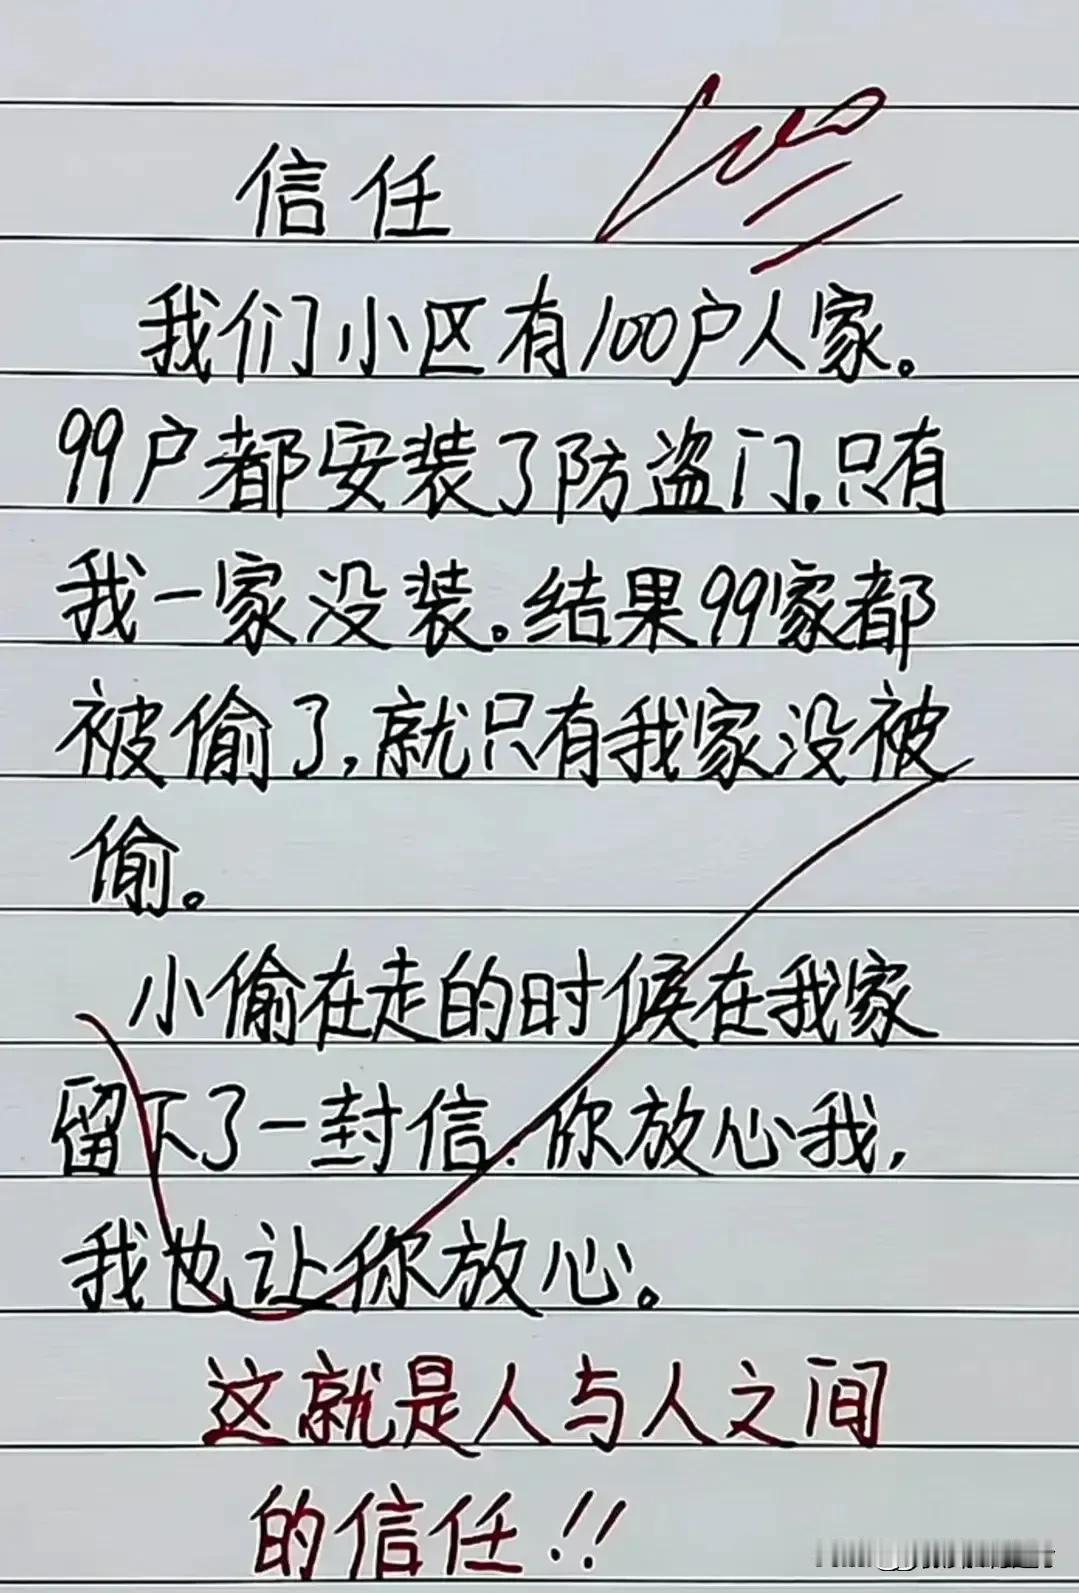 信任 100
我们小区有100户人家。
99户都安装了防盗门.只有
我一家没装。结果99家都
被偷了,就只有我家没被
偷。
小偷在走的时候在我家
留下了一封信.你放心我,
我也让你放心。
这就是人与人之间
的信任!!